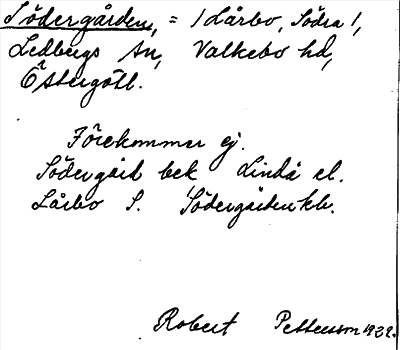 Södergården, = / Lårbo, Södra /,
Ledbergs sn, Valkebo hd,
Östergötl.
Förekommer ej.
Södergård bek Lindå el.
Lårbo S. Södergården kb.
Robert Pettersson 1932.